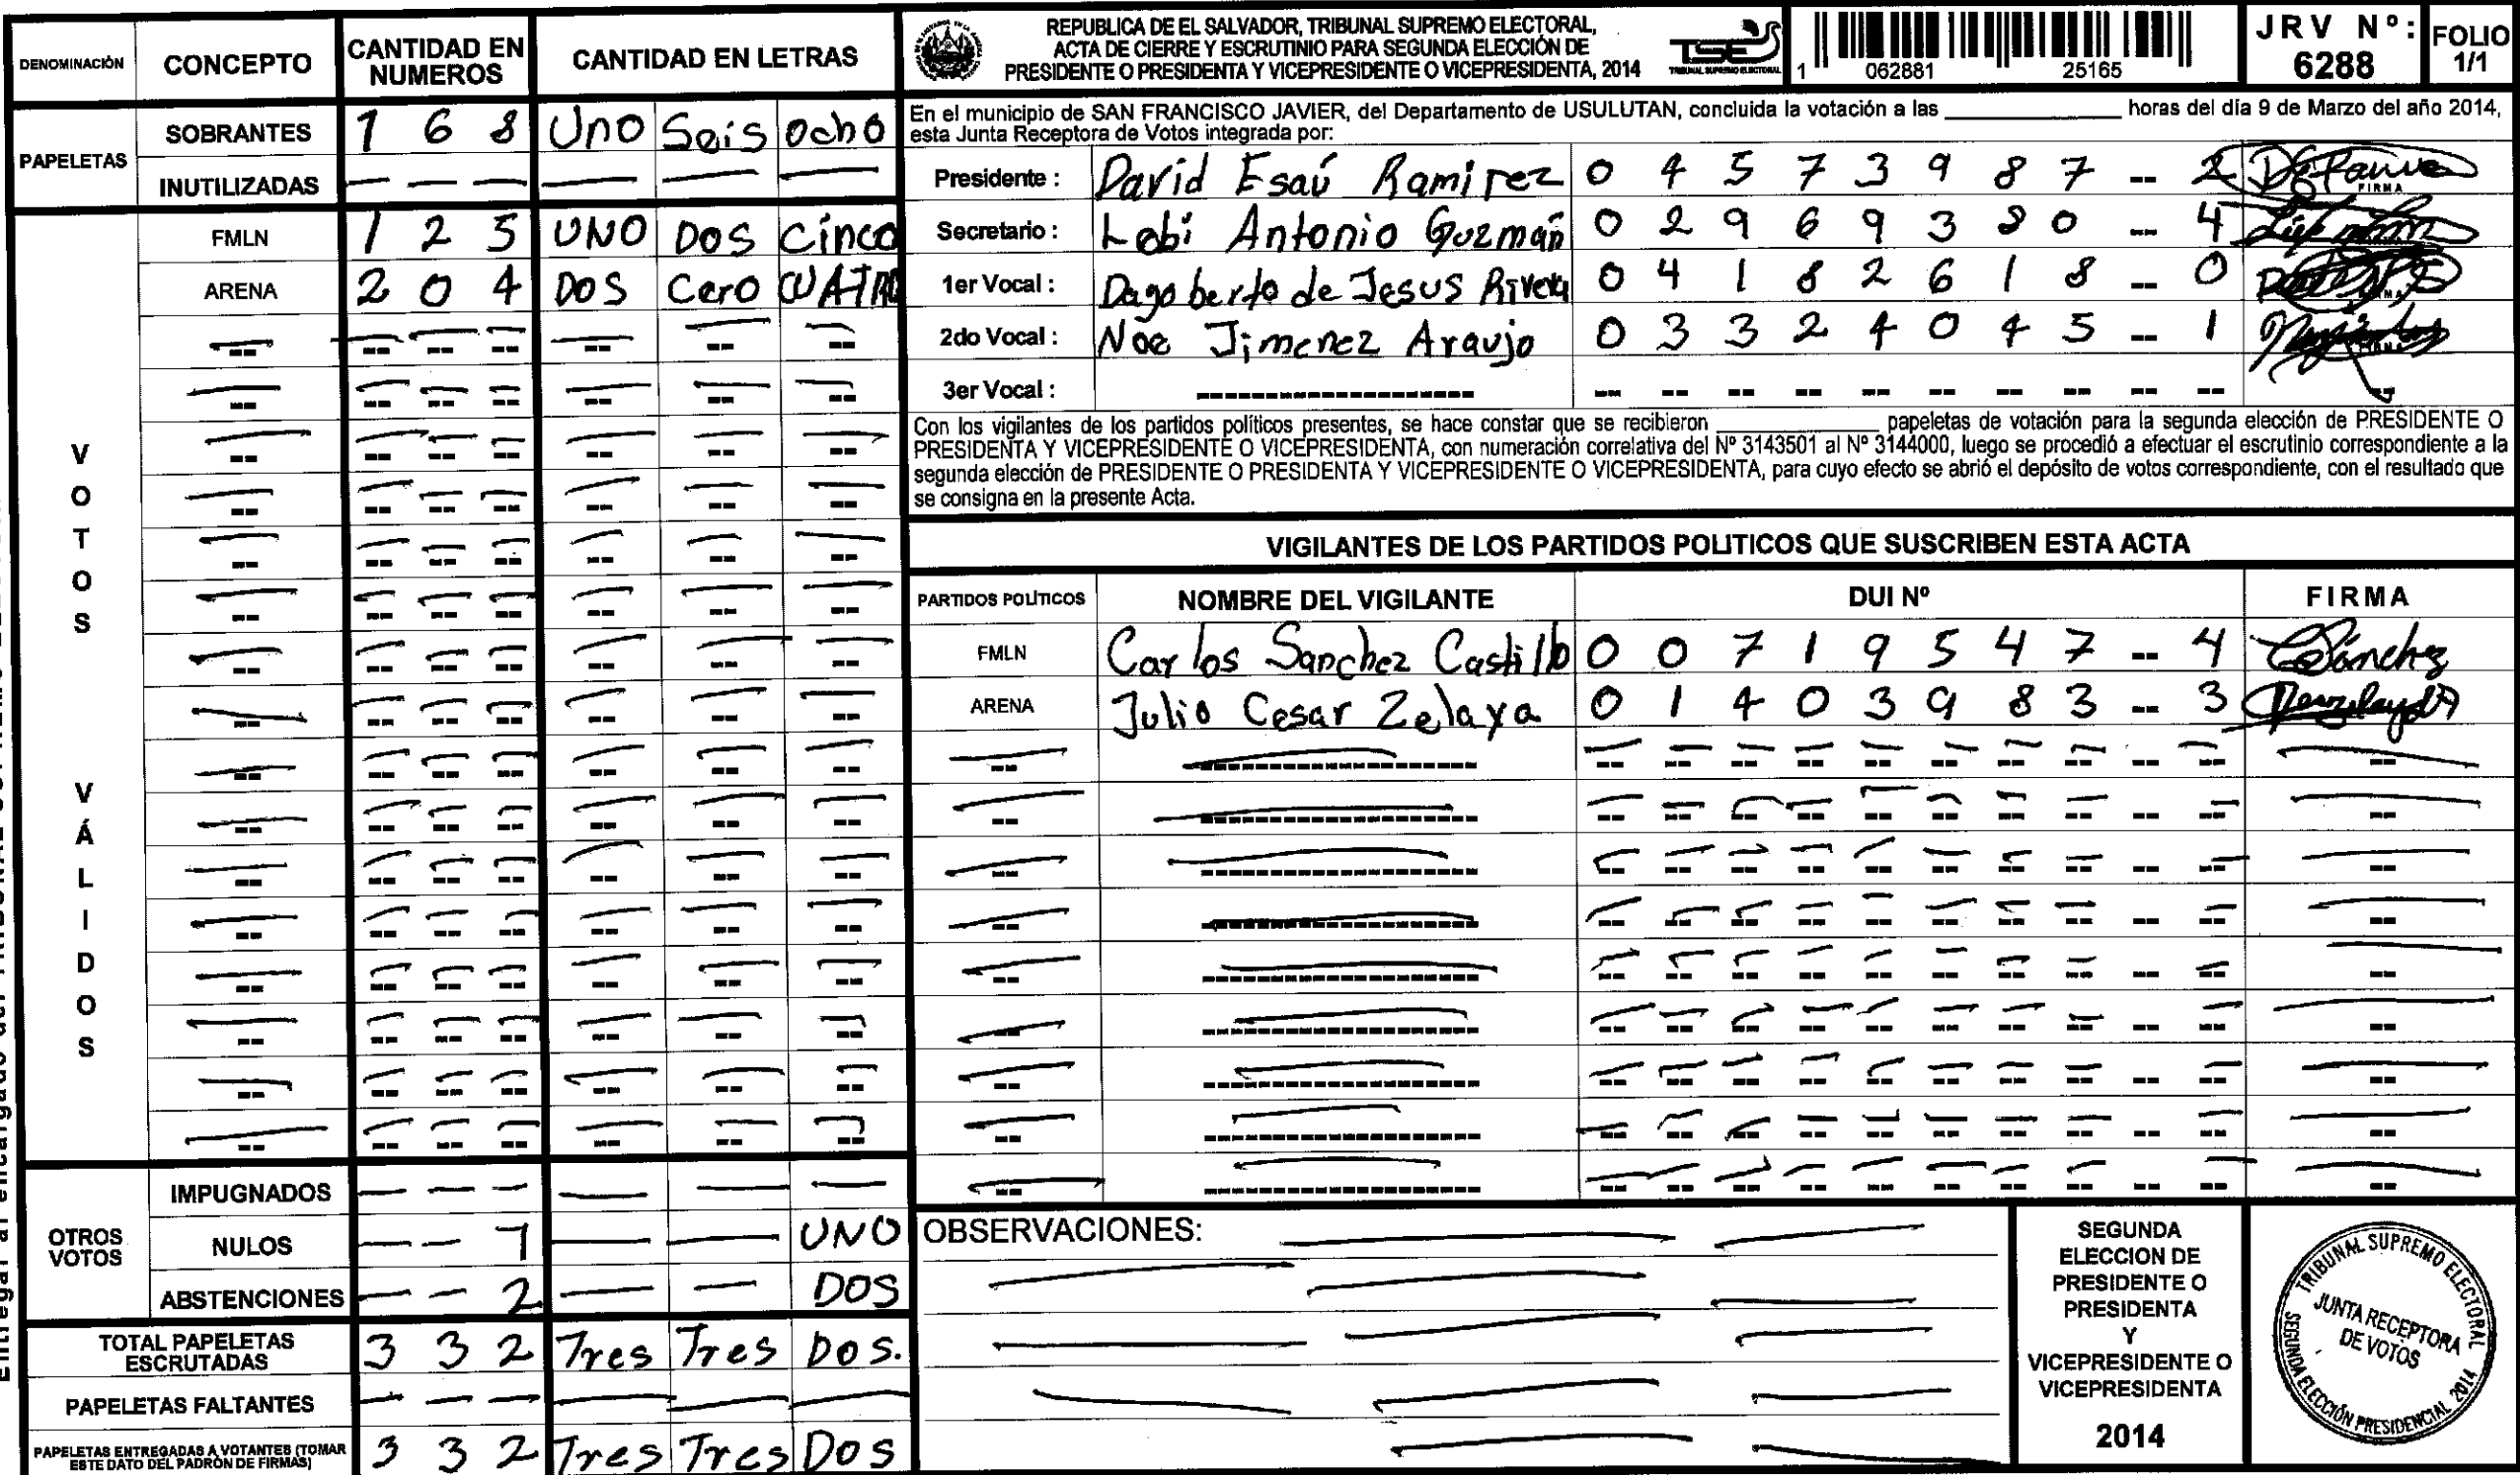 DENOMINACIÓN CONCEPTO CANTIDAD EN NUMEROS CANTIDAD EN LETRAS
PAPELETAS
SOBRANTES 1 6 8 Uno Seis ocho
INUTILIZADAS
VOTOS VÁLIDOS
FMLN 1 2 5 UNO DOS Cinco
ARENA 2 0 4 DOS Cero CUATRO
OTROS VOTOS
IMPUGNADOS
NULOS 1 UNO
ABSTENCIONES 2 DOS
TOTAL PAPELETAS ESCRUTADAS 3 3 2 Tres Tres Dos.
PAPELETAS FALTANTES
PAPELETAS ENTREGADAS A VOTANTES (TOMAR ESTE DATO DEL PADRÓN DE FIRMAS) 3 3 2 Tres Tres Dos
REPUBLICA DE EL SALVADOR, TRIBUNAL SUPREMO ELECTORAL,
ACTA DE CIERRE Y ESCRUTINIO PARA SEGUNDA ELECCIÓN DE
PRESIDENTE O PRESIDENTA Y VICEPRESIDENTE O VICEPRESIDENTA, 2014
TSE
TRIBUNAL SUPREMO ELECTORAL
1 062881 25165
JRV Nº: 6288
FOLIO 1/1
En el municipio de SAN FRANCISCO JAVIER, del Departamento de USULUTAN, concluida la votación a las ________ horas del día 9 de Marzo del año 2014,
esta Junta Receptora de Votos integrada por:
Presidente : David Esaú Ramirez 0 4 5 7 3 9 8 7 -- 2 FIRMA
Secretario : Lobi Antonio Guzmán 0 2 9 6 9 3 8 0 -- 4
1er Vocal : Dagoberto de Jesus Rivera 0 4 1 8 2 6 1 8 -- 0
2do Vocal : Noe Jimenez Araujo 0 3 3 2 4 0 4 5 -- 1
3er Vocal :
Con los vigilantes de los partidos políticos presentes, se hace constar que se recibieron ________ papeletas de votación para la segunda elección de PRESIDENTE O
PRESIDENTA Y VICEPRESIDENTE O VICEPRESIDENTA, con numeración correlativa del Nº 3143501 al Nº 3144000, luego se procedió a efectuar el escrutinio correspondiente a la
segunda elección de PRESIDENTE O PRESIDENTA Y VICEPRESIDENTE O VICEPRESIDENTA, para cuyo efecto se abrió el depósito de votos correspondiente, con el resultado que
se consigna en la presente Acta.
VIGILANTES DE LOS PARTIDOS POLITICOS QUE SUSCRIBEN ESTA ACTA
PARTIDOS POLÍTICOS NOMBRE DEL VIGILANTE DUI Nº FIRMA
FMLN Carlos Sanchez Castillo 0 0 7 1 9 5 4 7 -- 4 Sánchez
ARENA Julio Cesar Zelaya 0 1 4 0 3 9 8 3 -- 3
OBSERVACIONES:
SEGUNDA
ELECCION DE
PRESIDENTE O
PRESIDENTA
Y
VICEPRESIDENTE O
VICEPRESIDENTA
2014
TRIBUNAL SUPREMO ELECTORAL
JUNTA RECEPTORA
DE VOTOS
SEGUNDA ELECCIÓN PRESIDENCIAL 2014